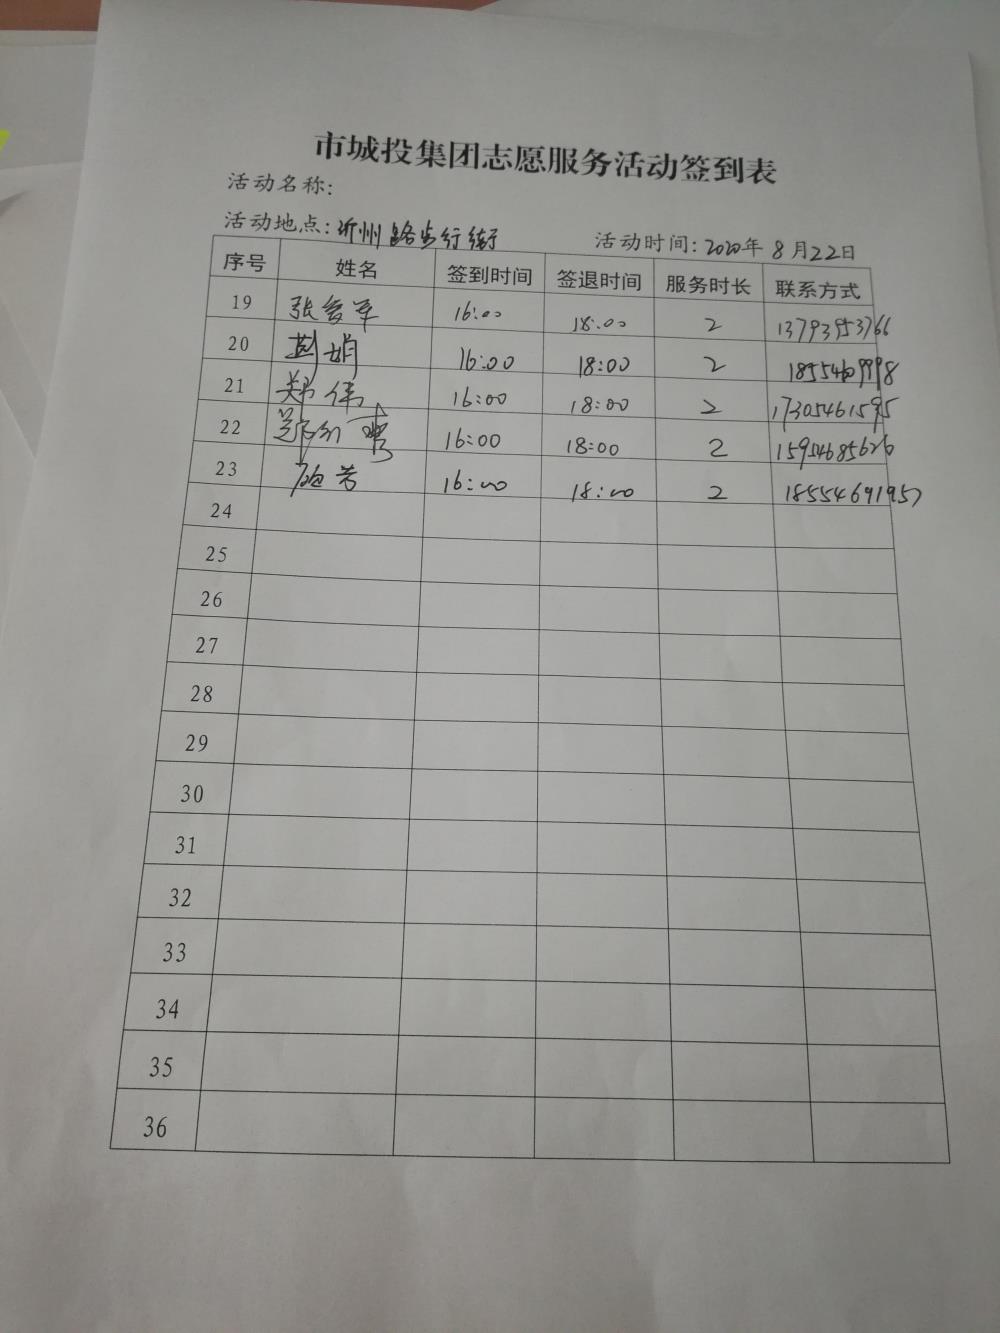 市城投集团志愿服务活动签到表
活动名称:
活动地点: 沂州路步行街 活动时间: 2020年8月22日
序号 姓名 签到时间 签退时间 服务时长 联系方式
19 张 军 16:00 18:00 2 13793953766
20 娟 16:00 18:00 2
21 郑伟 16:00 18:00 2 17305461595
22 16:00 18:00 2 15954685626
23 芳 16:00 18:00 2 18554691957
24
25
26
27
28
29
30
31
32
33
34
35
36